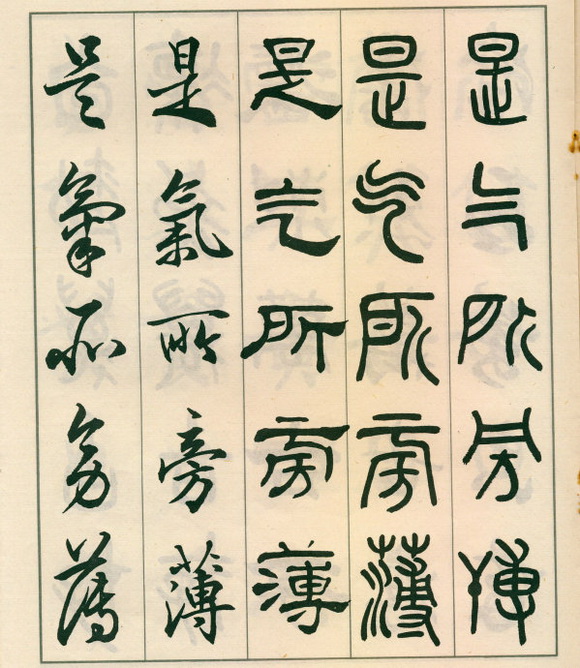 是气所旁
是气所旁薄
是气所旁薄
是氣所旁薄
是氣所旁薄